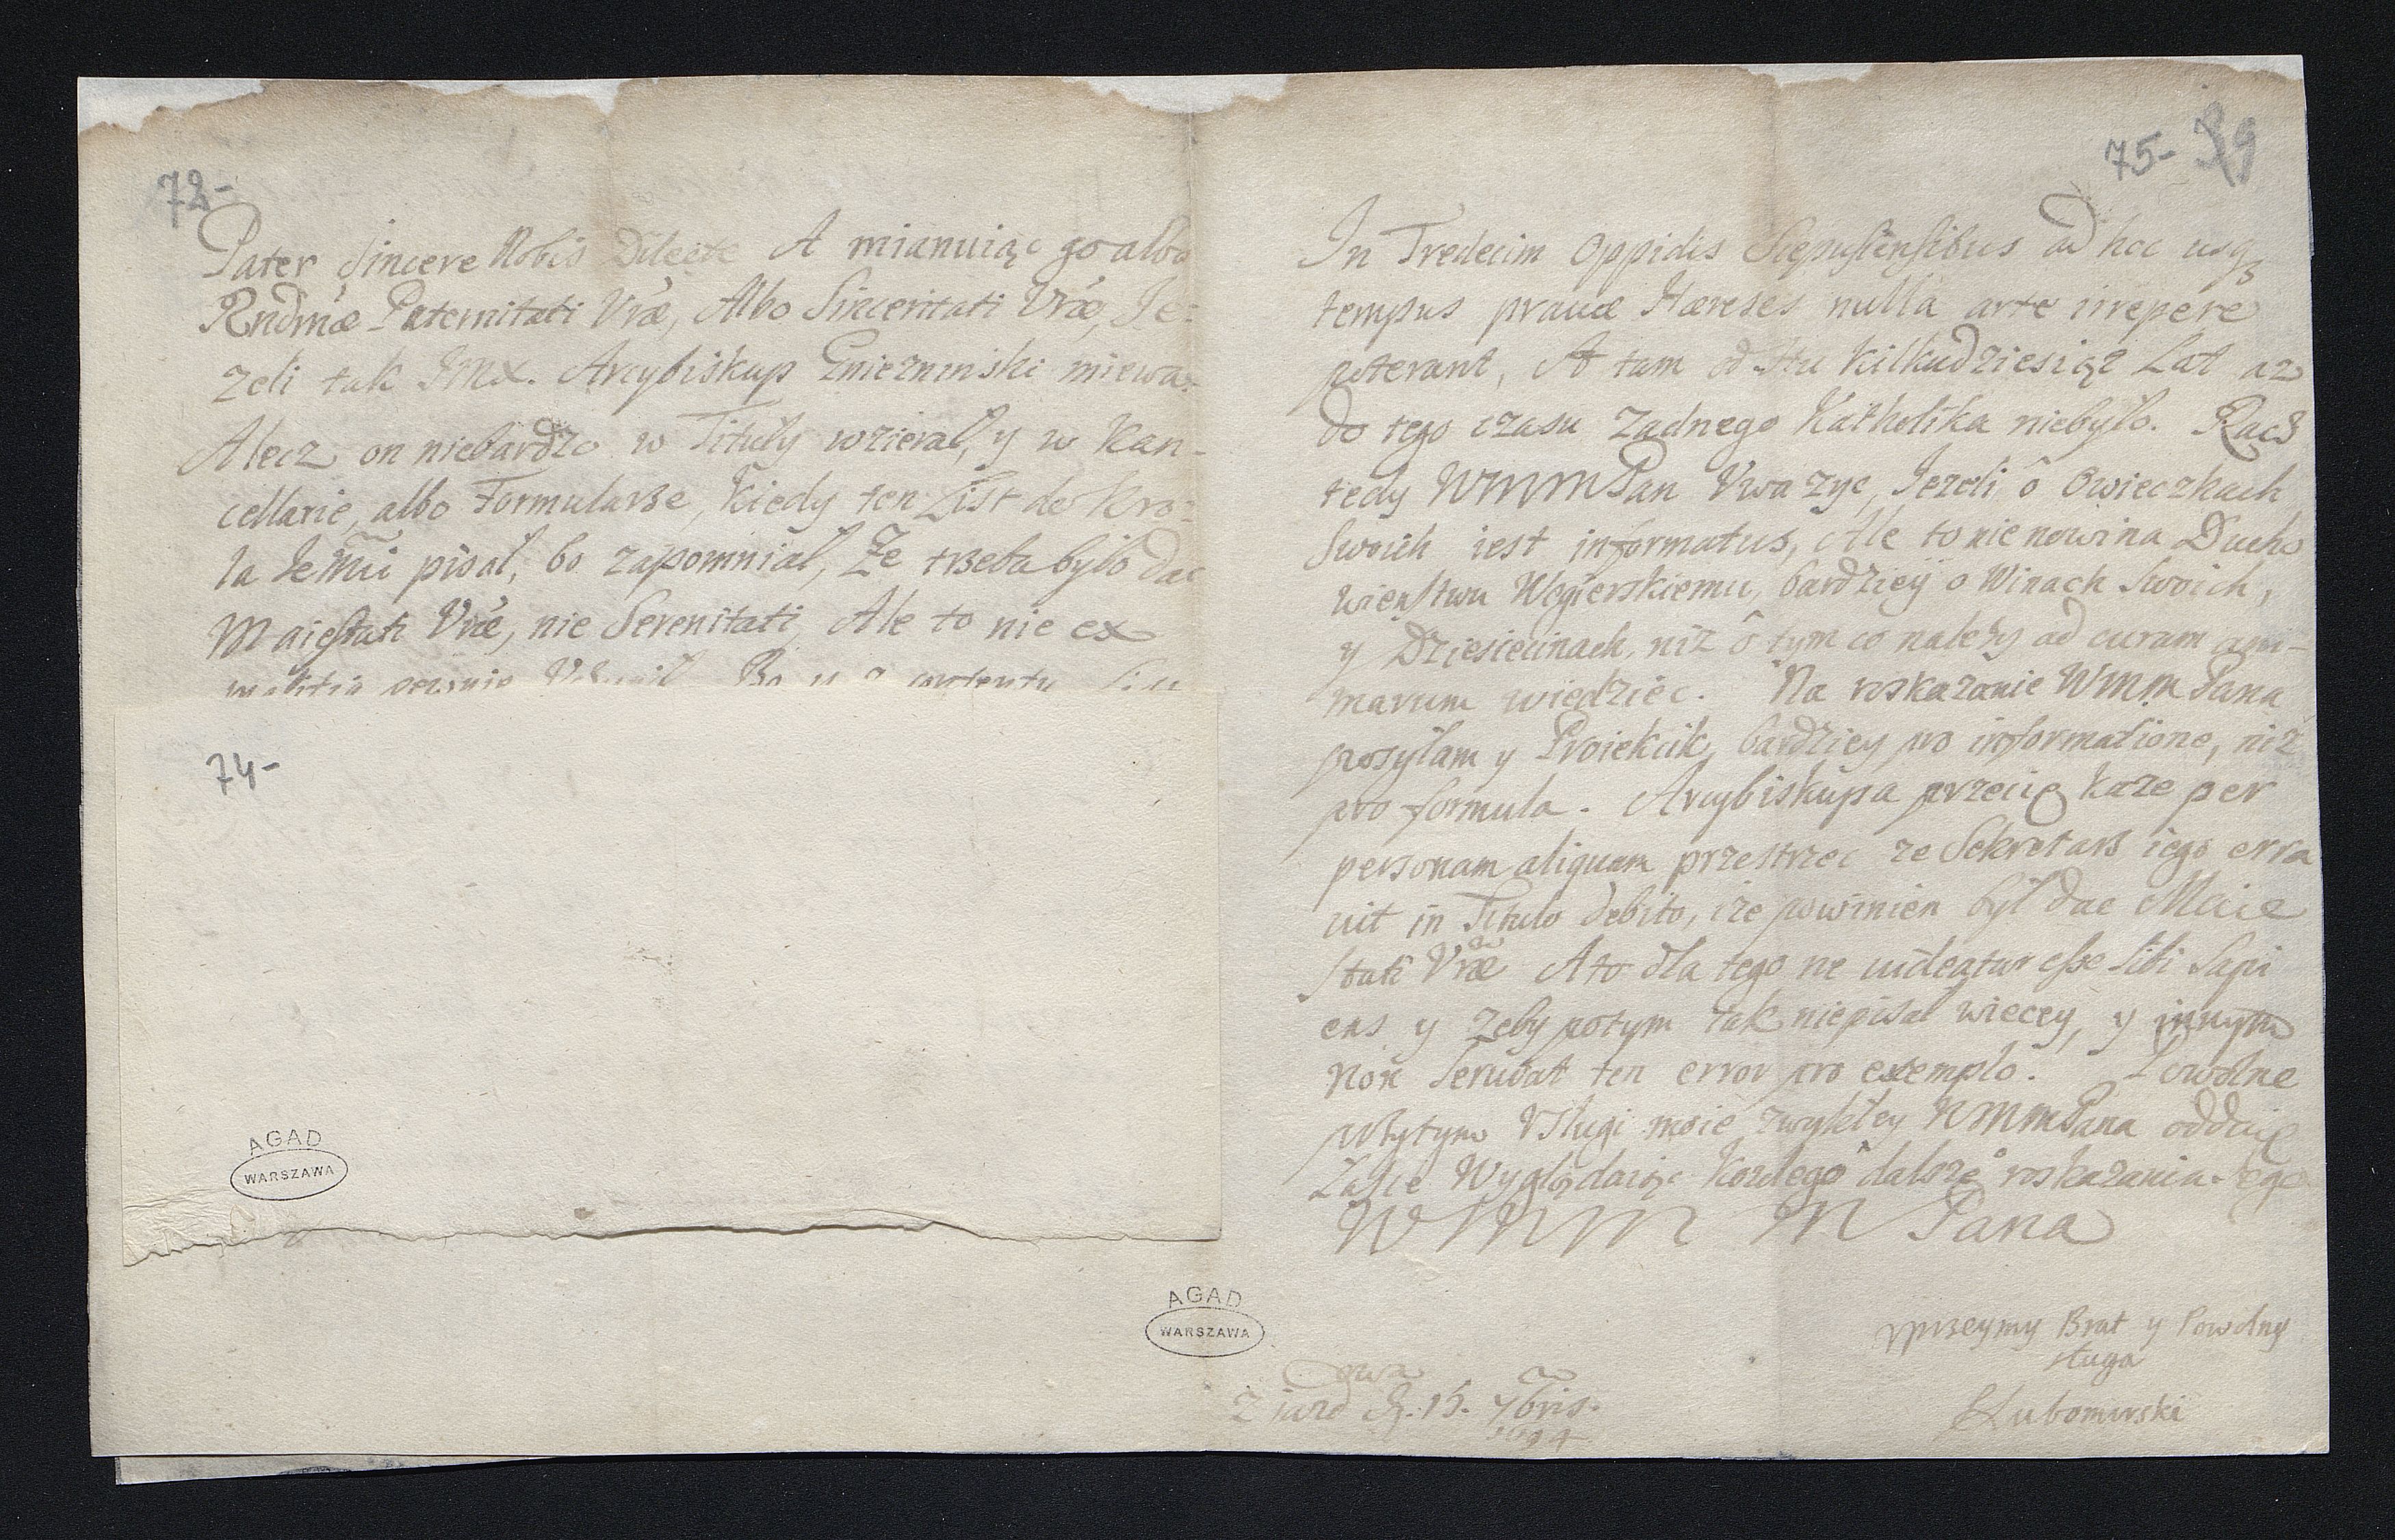 72-
Pater Sincere Nobis Dilecte A mianuiąc go albo
Rndmæ Paternitati Vræ, Albo Sinceritati Vræ, Je=
zeli tak JMX. Arcybiskup Gniezninski miewa.
Alecz on niebardzo w Tituly wzieral, y w Kan-
cellarie, albo Formularse, kiedy ten List do Kro=
la Jemũ pisal, bo zapomnial, Ze trzeba bylo dac
Maiestati Vræ, nie Serenitati, Ale to nie ex
74-
AGAD
WARSZAWA
75- 39
In Tredecim Oppidis Scepusiensibus ad hoc usq
tempus prauæ Hæreses nulla arte irrepere
poterant, A tam od Stu kilkudziesiąt Lat az
do tego czasu zadnego Katholika niebylo. Racz
tedy WMMPan Vwazyc, Jezeli ô Owieczkach
Swoich iest informatus, Ale to nie nowina Ducho
wienstwu Wegierskiemu, bardzieÿ o Winach Swoich,
y Dziesiecinach, niz ô tym co nalezy ad curam ani-
marum wiedziec. Na roskazanie WMM Pana
posylam y Proiekcik, bardziey pro informatione, niz
pro formula. Arcybiskupa przecię kaze per
personam aliquam przestrzec ze Sekretarz iego erra
uit in Titulo debito, ize powinien byl dac Maie
stati Vræ A to dla tego ne uideatur esse Sibi Sapi
ens y zeby potym tak niepisal wiecey, y innym
non Seruiat ten error pro exemplo. Powolne
przytym Vslugi moie zwykley WMMPana oddaię
Lasce Wyglądaiąc kozdego dalszeº roskazania. ego
WMM M Pana
vprzeymy Brat y Powolny
sluga
Lubomirski
AGAD
WARSZAWA
15. 7bris.